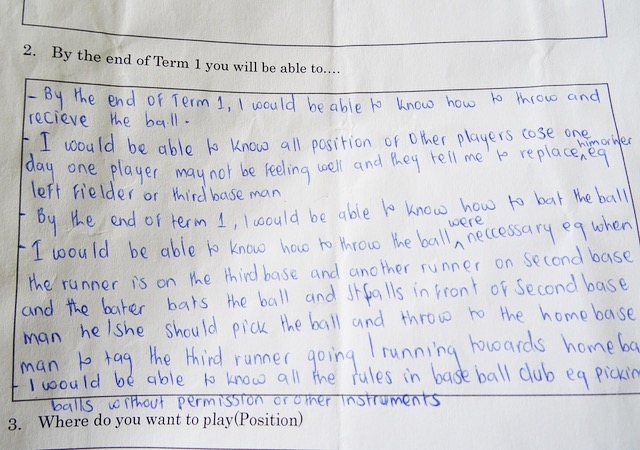 2. By the end of Term 1 you will be able to....
- By the end of Term 1, I would be able to know how to throw and
recieve the ball.
- I would be able to know all position of other players cose one
day one player may not be feeling well and they tell me to replace him or her eg
left fielder or third base man
- By the end of term 1, I would be able to know how to bat the ball
- I would be able to know how to throw the ball were neccessary eg when
the runner is on the third base and another runner on second base
and the bater bats the ball and it falls in front of second base
man he/she should pick the ball and throw to the home base
man to tag the third runner going / running towards home ba
- I would be able to know all the rules in base ball club eg pickin
balls without permission or other instruments
3. Where do you want to play(Position)